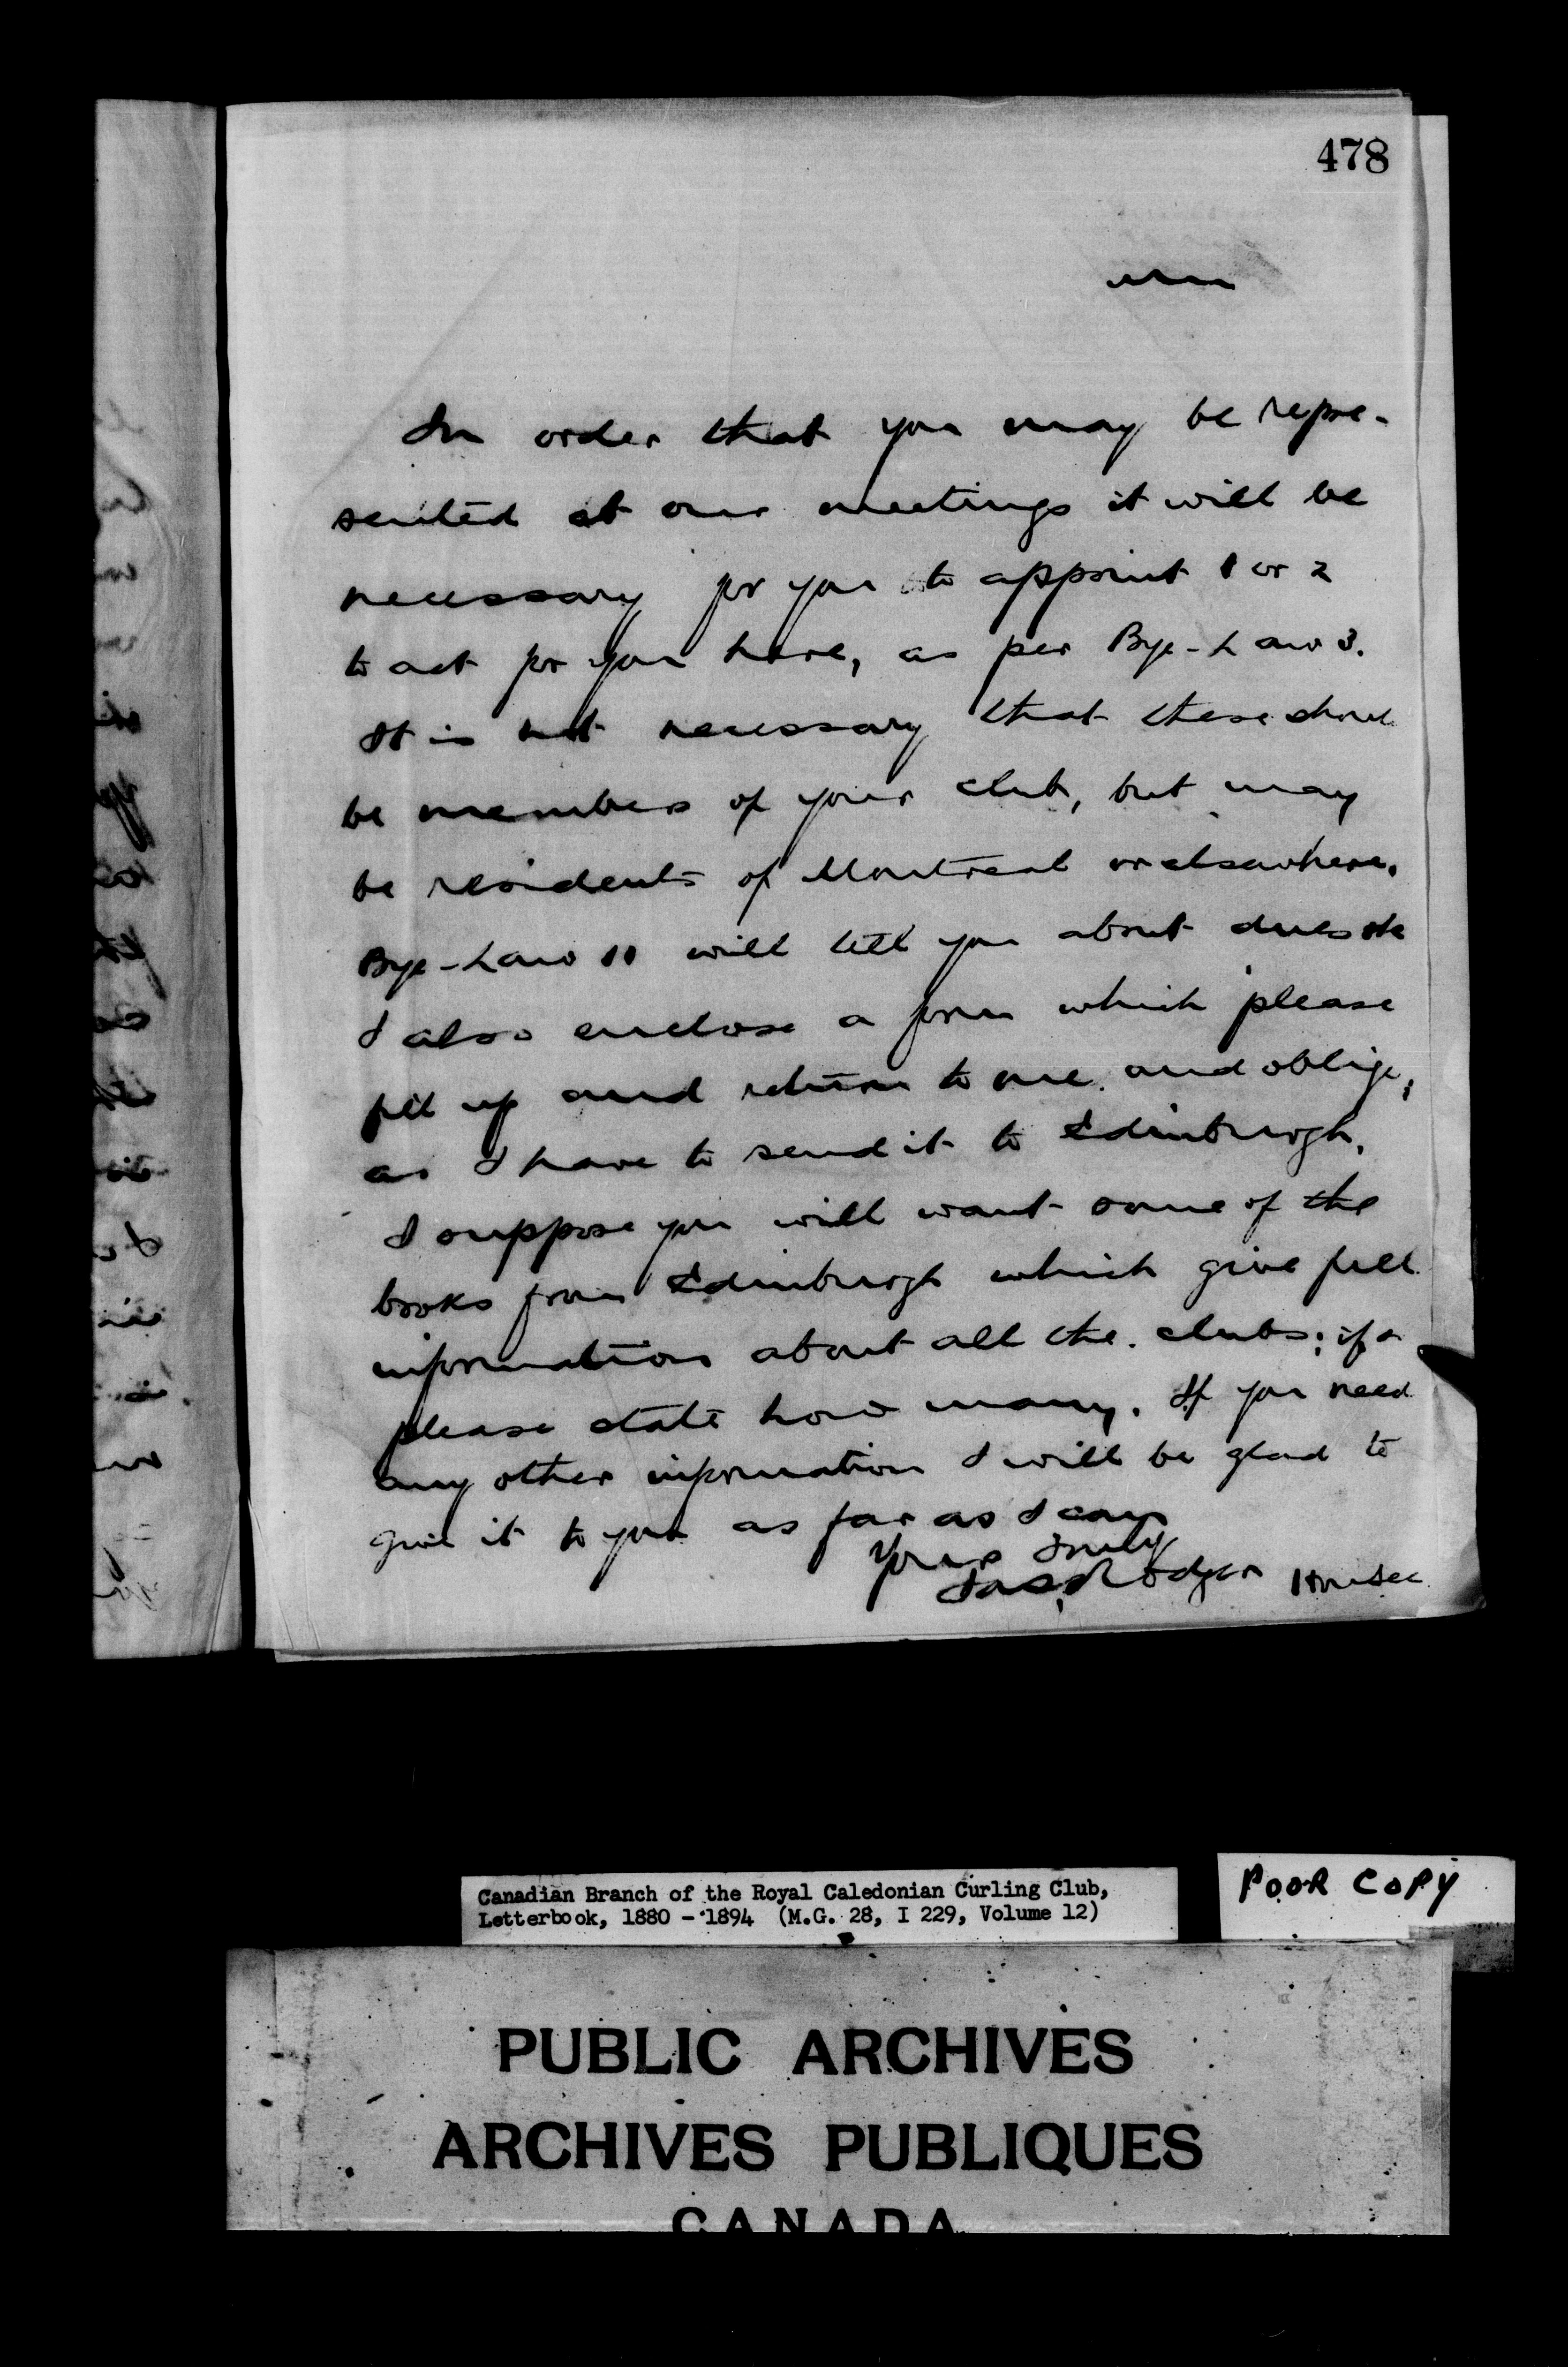 478
In order that you may be repre-
sented at our meetings it will be
necessary for you to appoint 1 or 2
to act for you here, as per Bye-Law 3.
It is not necessary that these shoul
be members of your club, but may
be residents of Montreal or elsewhere.
Bye-Law 11 will tell you about dues
I also enclose a form which please
fill up and return to me and oblige,
as I have to send it to Edinburgh.
I suppose you will want some of the
books from Edinburgh which give full
information about all the clubs; if
please state how many. If you need
any other information I will be glad to
give it to you as far as I can
Yours Truly
Jas. Rodger Hon Sec
Canadian Branch of the Royal Caledonian Curling Club,
Letterbook, 1880 - 1894 (M.G. 28, I 229, Volume 12)
POOR COPY
PUBLIC ARCHIVES
ARCHIVES PUBLIQUES
CANADA